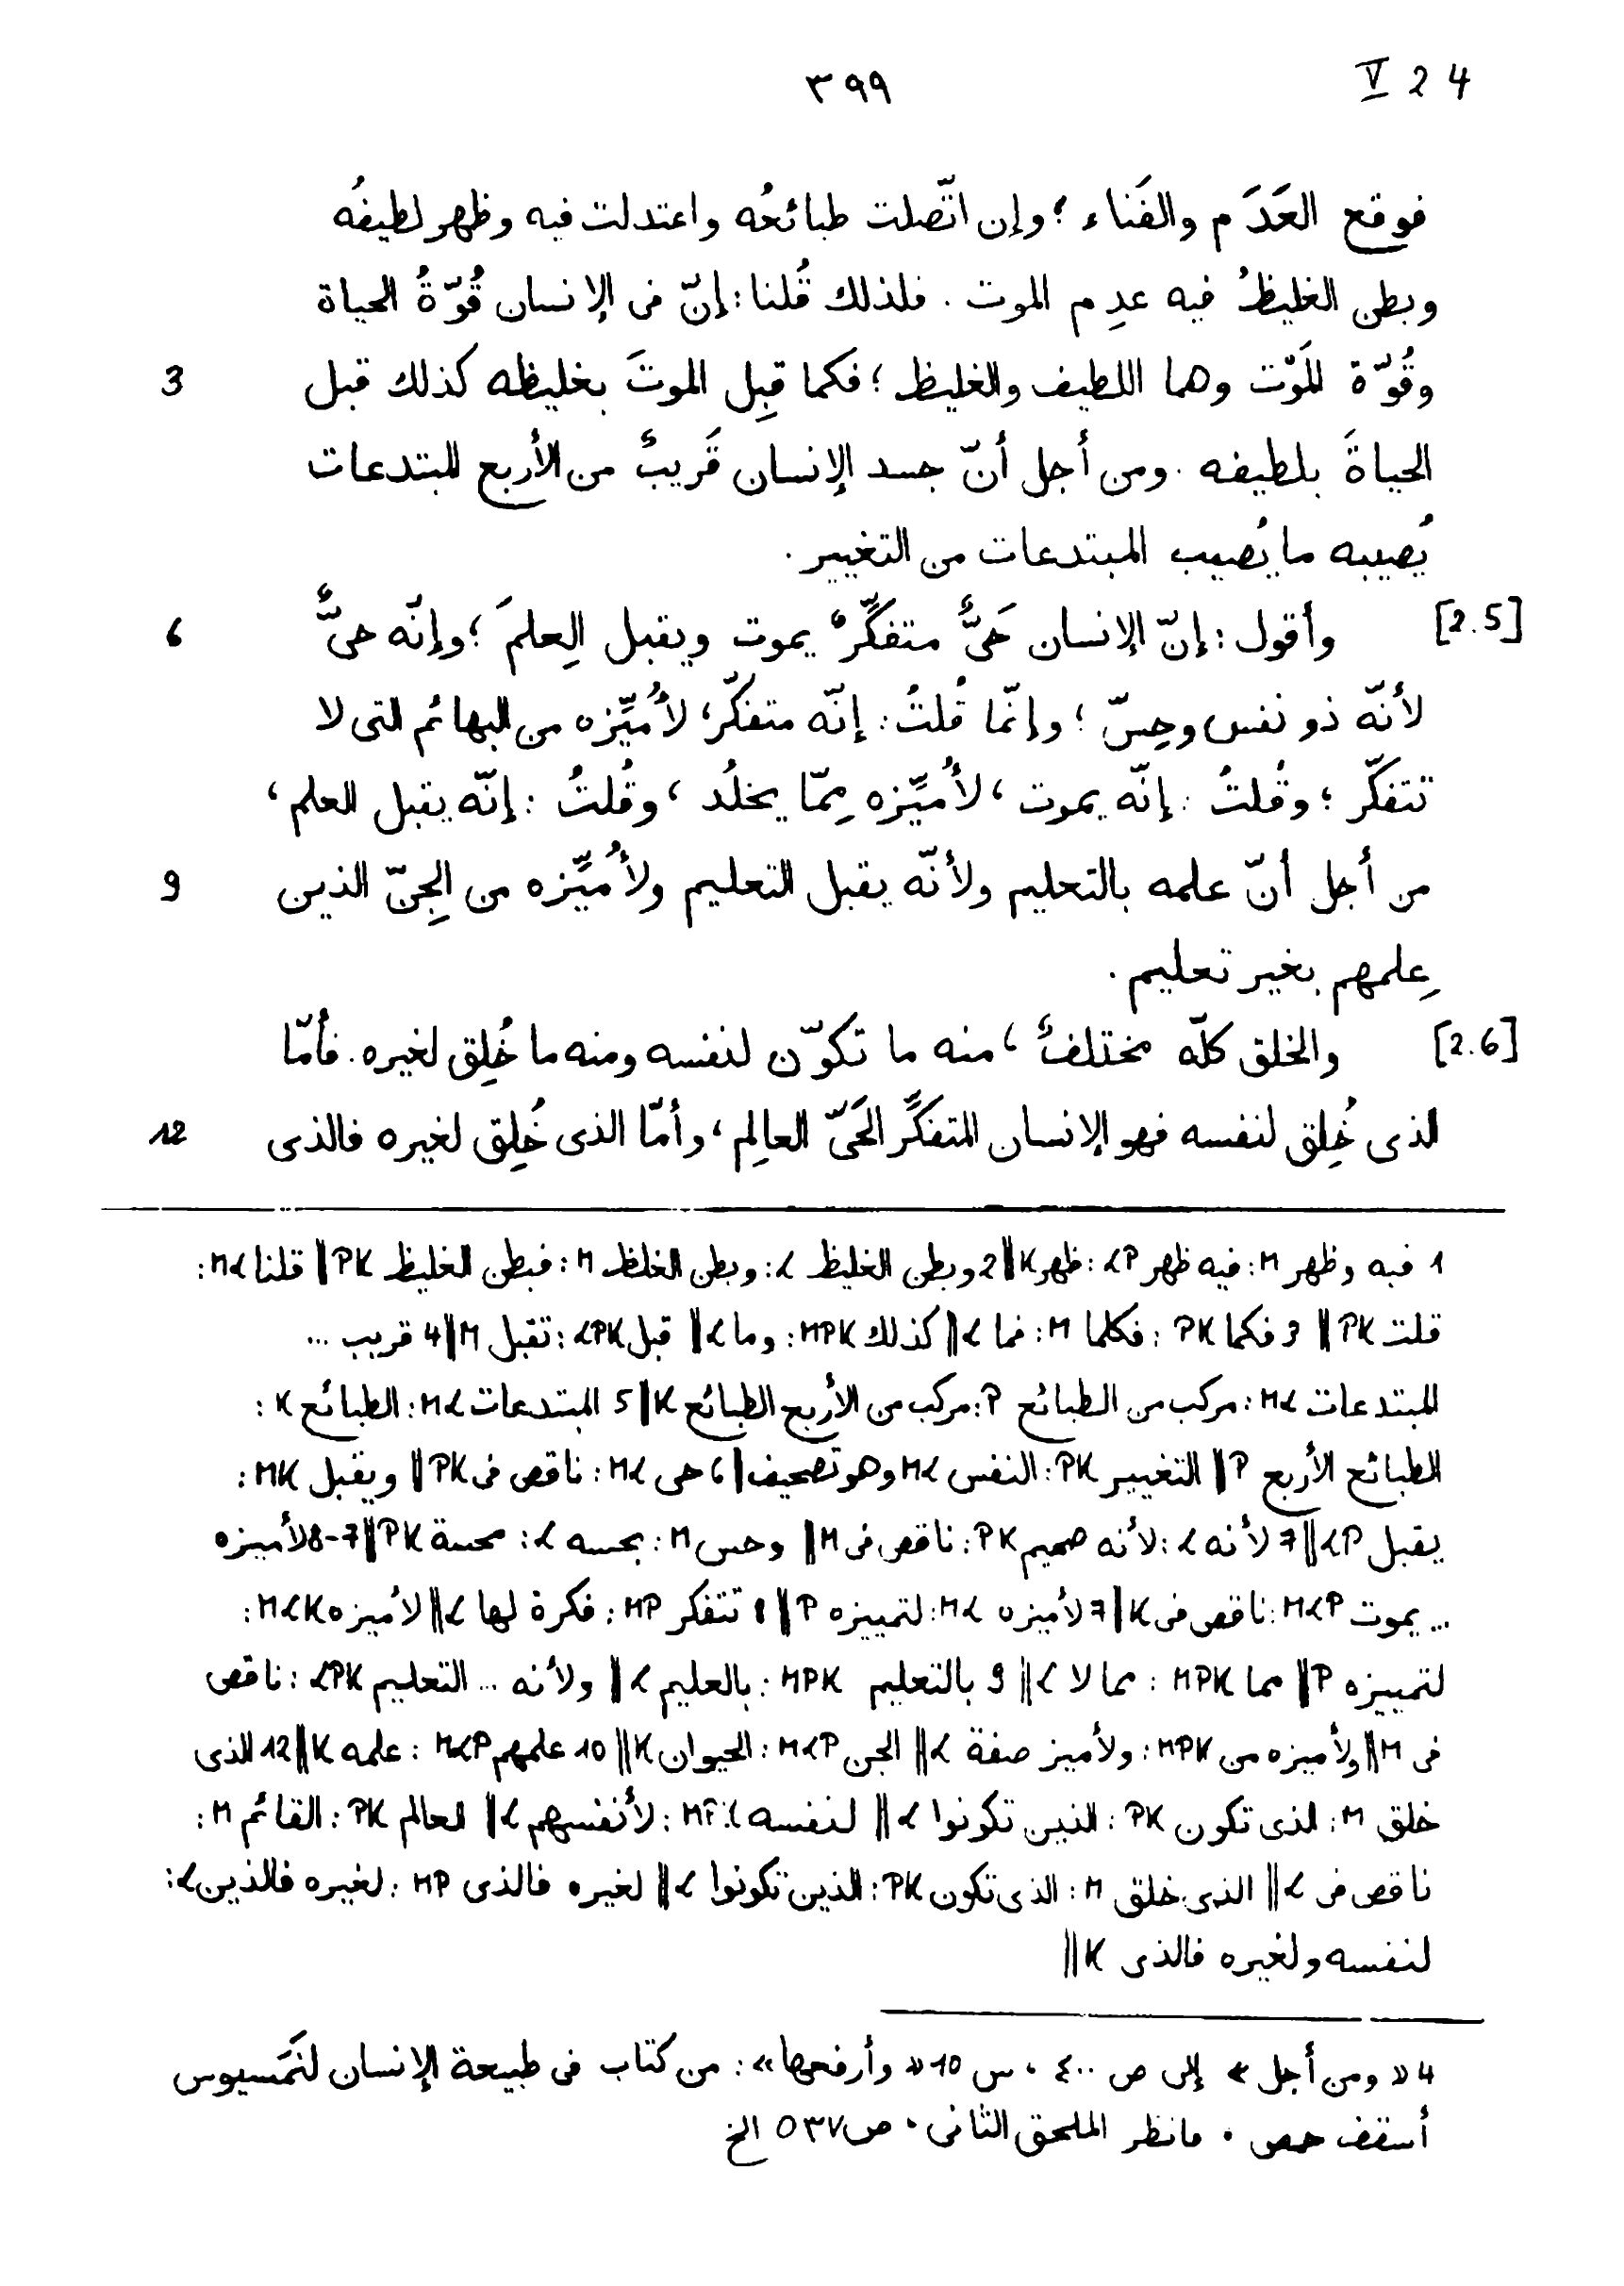 ٣٩٩ V 24
فوقع العَدَم والفَناء ؛ وإن اتّصلت طبائعُه واعتدلت فيه وظهر لطيفُه
وبطن الغليظُ فيه عدِم الموت . فلذلك قُلنا : إنّ فى الإنسان قُوّةُ الحياة
3 وقُوّة المَوْت وهما اللطيف والغليظ ؛ فكما قبِل الموتَ بغليظه كذلك قبل
الحياةَ بلطيفه . ومن أجل أنّ جسد الإنسان قَريبٌ من الأربع المبتدعات
يُصيبه ما يُصيب المبتدعات من التغيير .
6 [2.5] وأقول : إنّ الإنسان حَىٌّ متفكّرٌ يموت ويقبل العِلمَ ؛ وإنّه حىٌّ
لأنّه ذو نفس وحِسّ ؛ وإنّما قُلتُ : إنّه متفكّر ، لأُميِّزه من البهائم التى لا
تتفكّر ؛ وقُلتُ : إنّه يموت ، لأُميِّزه مِمّا يخلُد ، وقُلتُ : إنّه يقبل العلم ،
9 من أجل أنّ علمه بالتعليم ولأنّه يقبل التعليم ولأُميِّزه من الجِنّ الذين
عِلمهم بغير تعليم .
[2.6] والخلق كلّه مختلفٌ ، منه ما تكوّن لنفسه ومنه ما خُلِق لغيره . فأمّا
12 الذى خُلِق لنفسه فهو الإنسان المتفكِّر الحَىّ العالِم ، وأمّا الذى خُلِق لغيره فالذى
1 فيه وظهر M : فيه ظهر LP : ظهر K || 2 وبطن الغليظ L : وبطن الغلظ M : فبطن الغليظ PK || قلنا ML :
قلت PK || 3 فكما PK : فكلما M : فما L || كذلك MPK : وما L || قبل LPK : تقبل M || 4 قريب ...
المبتدعات ML : مركب من الطبائع P : مركب من الأربع الطبائع K || 5 المبتدعات ML : الطبائع K :
الطبائع الأربع P || التغيير PK : النفس ML وهو تصحيف || 6 حى ML : ناقص فى PK || ويقبل MK :
يقبل LP || 7 لأنه L : لأنه صميم PK : ناقص فى M || وحس M : بحسه L : محسة PK || 7-8 لأميزه
... يموت MLP : ناقص فى K || 7 لأميزه ML : لتمييزه P || 8 تتفكر MP : فكرة لها L || لأميزه MLK :
لتمييزه P || مما MPK : مما لا L || 9 بالتعليم MPK : بالعليم L || ولأنه ... التعليم LPK : ناقص
فى M || ولأميزه من MPK : ولأميز صفة L || الجن MLP : الحيوان K || 10 علمهم MLP : علمه K || 12 الذى
خلق M : الذى تكون PK : الذين تكونوا L || لنفسه MPK : لأنفسهم L || العالم PK : القائم M :
ناقص فى L || الذى خلق M : الذى تكون PK : الذين تكونوا L || لغيره فالذى MP : لغيره فالذين L :
لنفسه ولغيره فالذى K ||
4 « ومن أجل » إلى ص ٤٠٠ ، س 10 « وأرفعها » : من كتاب فى طبيعة الإنسان لنَمَسيوس
أسقف حمص . فانظر الملحق الثانى . ص ٥٣٧ الخ